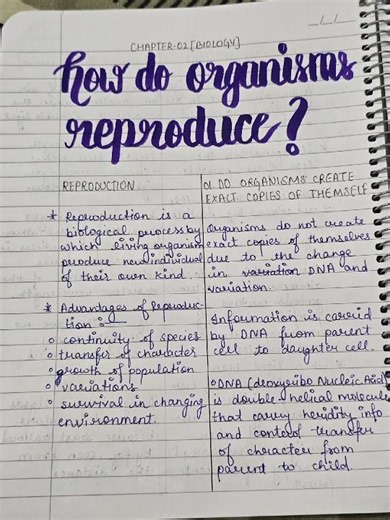 CHAPTER-02 [BIOLOGY]
how do organisms
reproduce?
REPRODUCTION
* Reproduction is a
biological process by
which living organism
produce new individual
of their own kind.
* Advantages of Reproduc-
tion :-
o continuity of species
o transfer of character
o growth of population
o variations
o survival in changing
environment
Q1. DO ORGANISMS CREATE
EXACT COPIES OF THEMSELF
Organisms do not create
exact copies of themselves
due to the change
in variation DNA and
variation.
Information is carried
by DNA from parent
cell to daughter cell.
o DNA (deoxyribo Nucleic Acid)
is double helical molecule
that carry heridity info
and control transfer
of character from
parent to child.